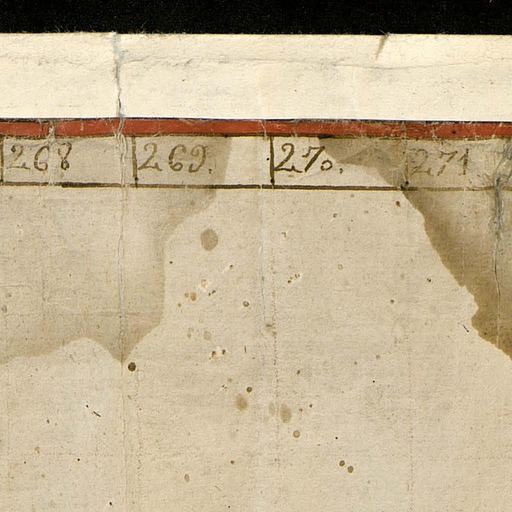 268 269. 270. 271